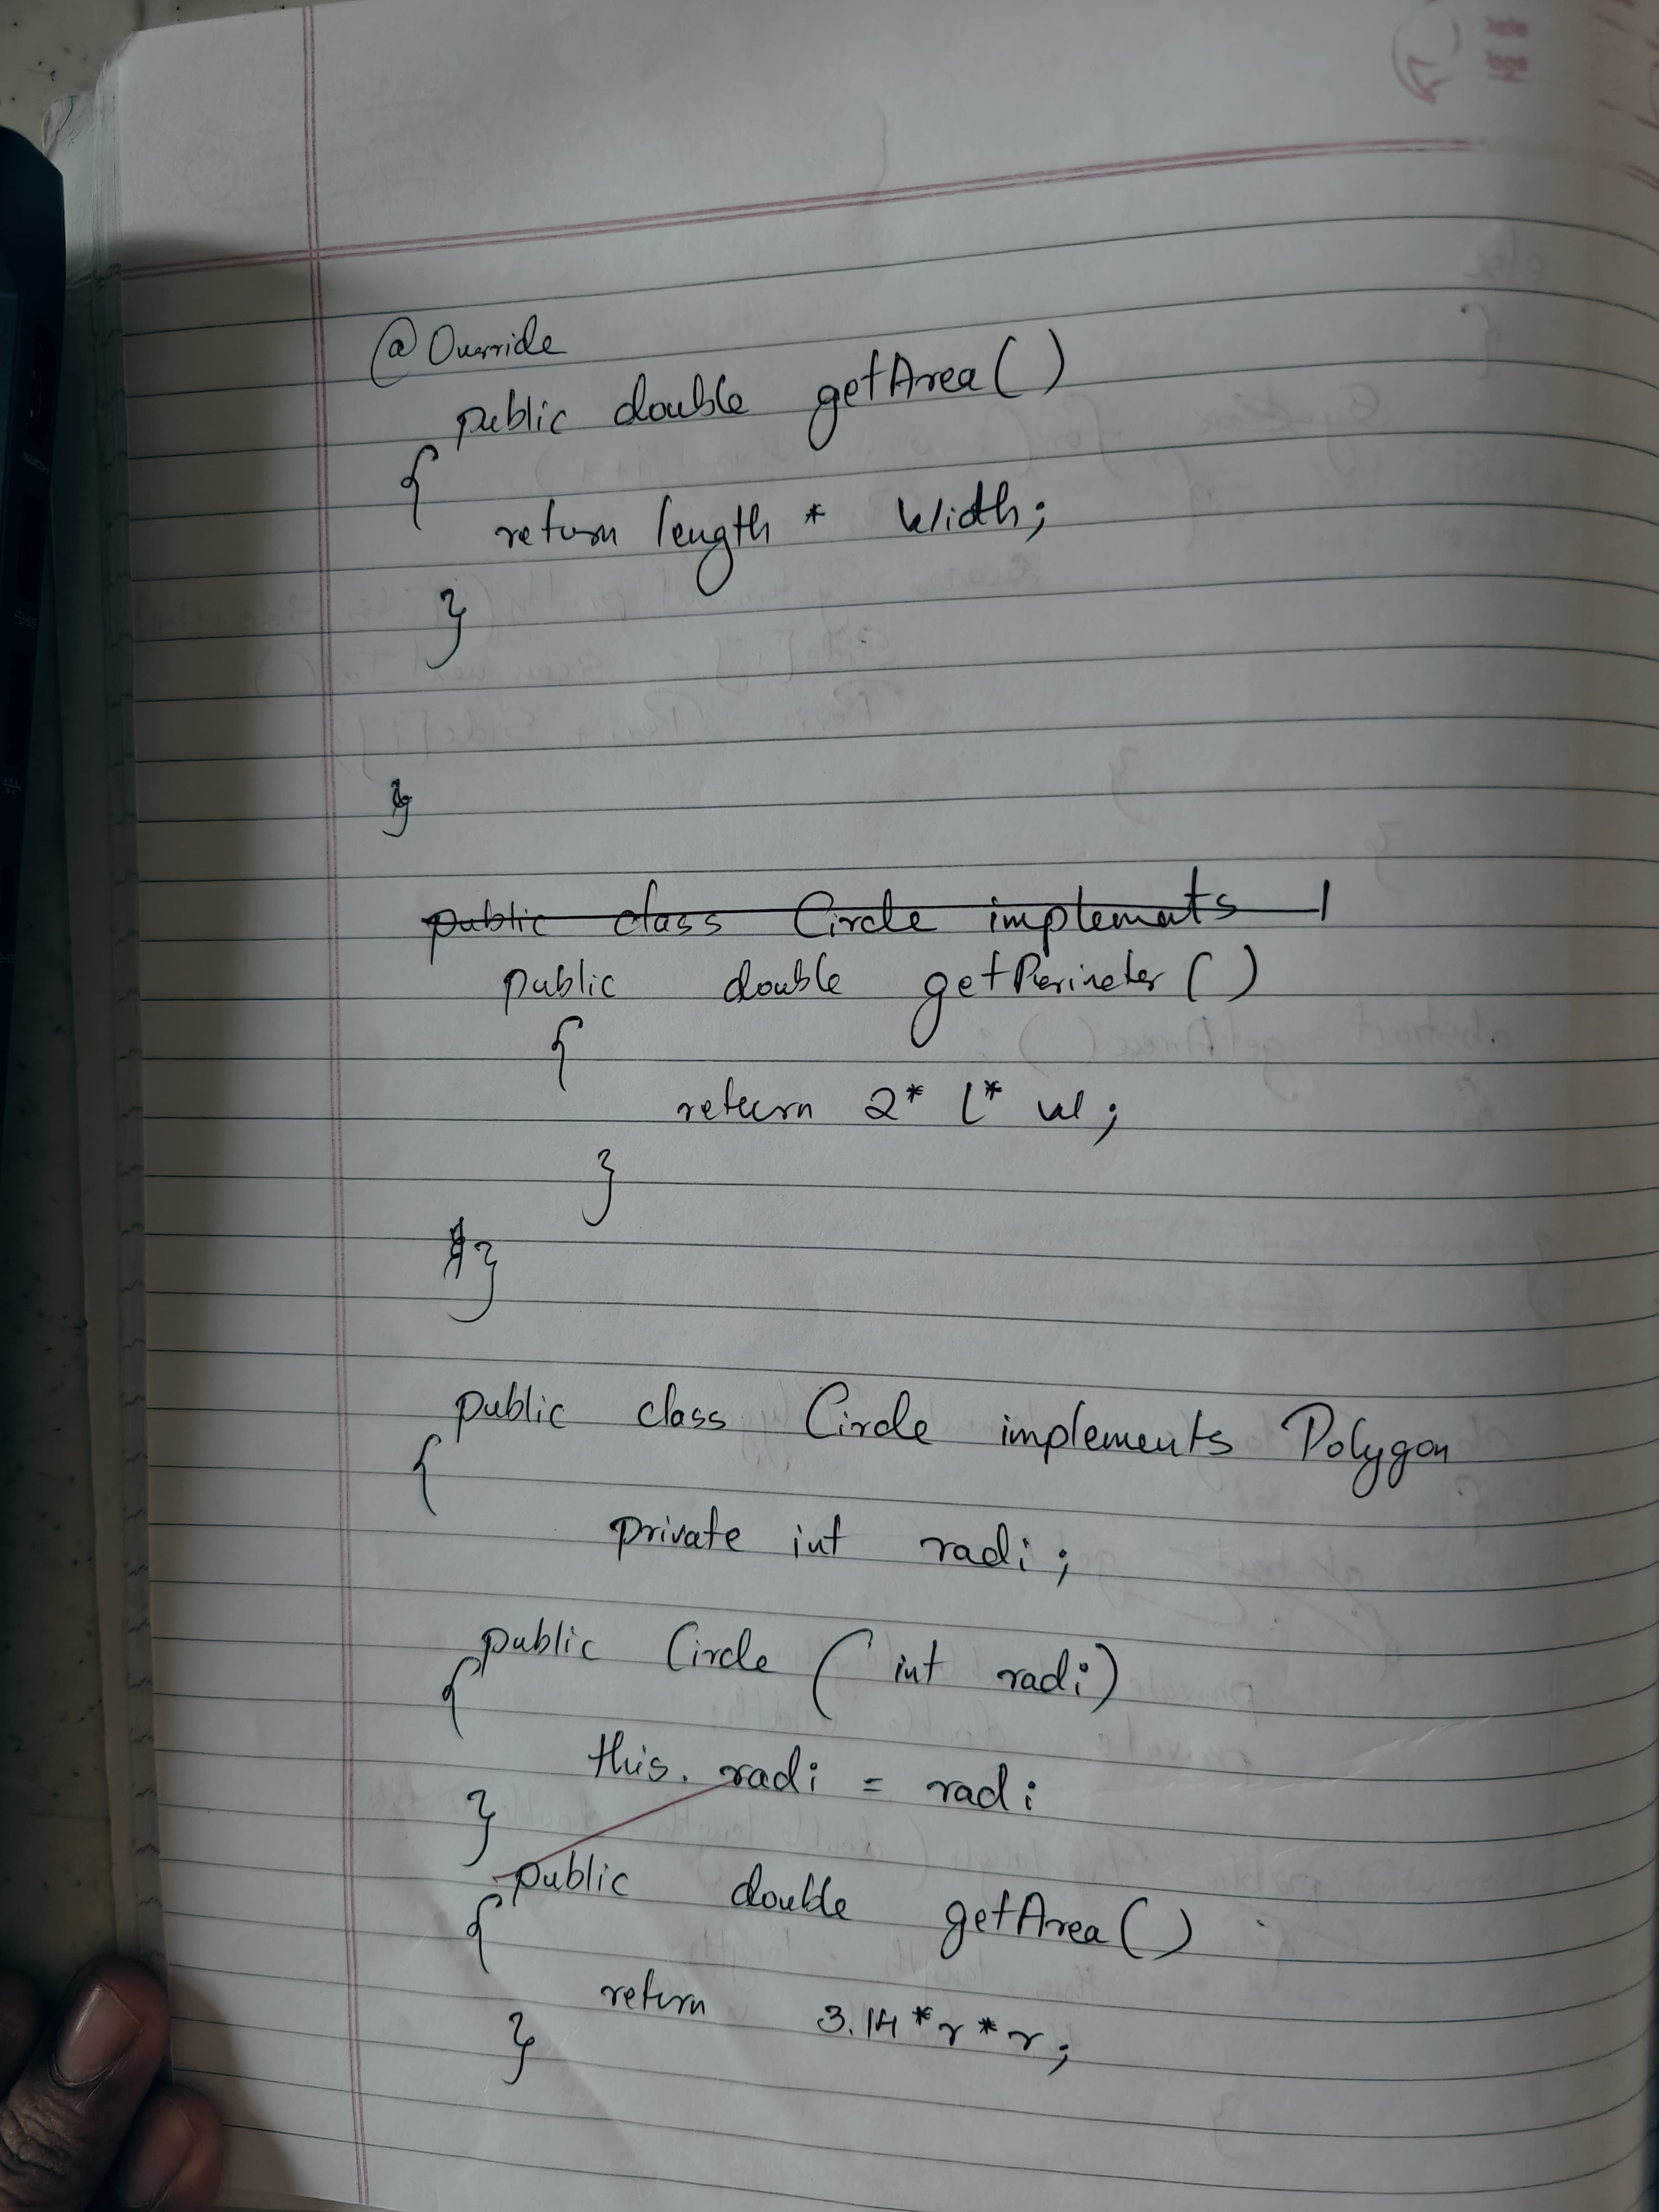 @Override
public double getArea()
{
return length * Width;
}
}
public class Circle implements
public double getPerimeter()
{
return 2* l* w;
}
}
public class Circle implements Polygon
{
private int radi;
public Circle ( int radi)
{
this. radi = radi
}
public double getArea()
{
return 3.14 *r *r;
}